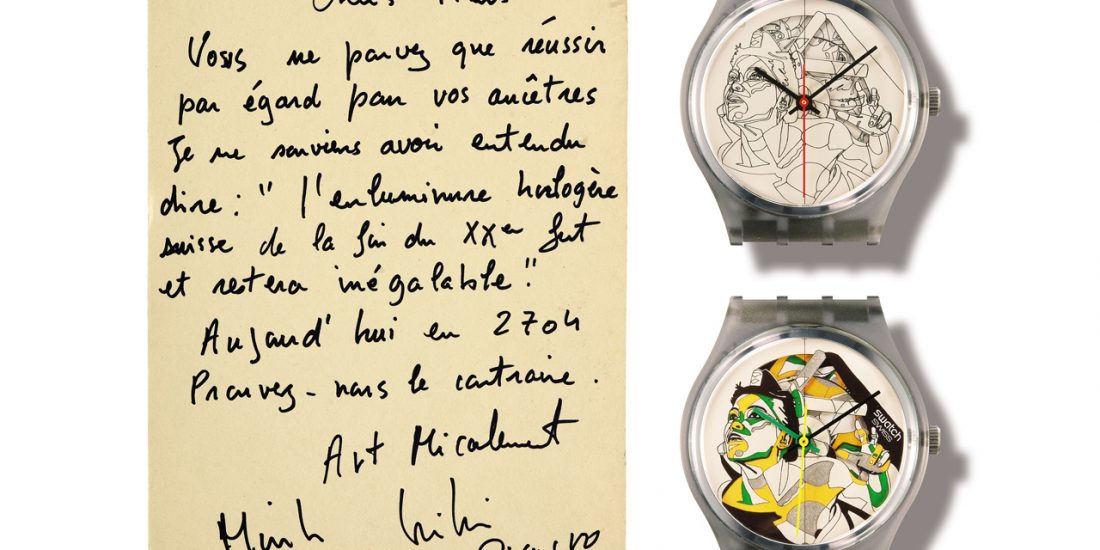 Vous ne pouvez que réussir
par égard pour vos ancêtres
Je me souviens avoir entendu
dire : " l'enluminure horlogère
suisse de la fin du XXe fut
et restera inégalable "
Aujourd'hui en 2704
Prouvez-nous le contraire.
Art Micalement
swatch
SWISS